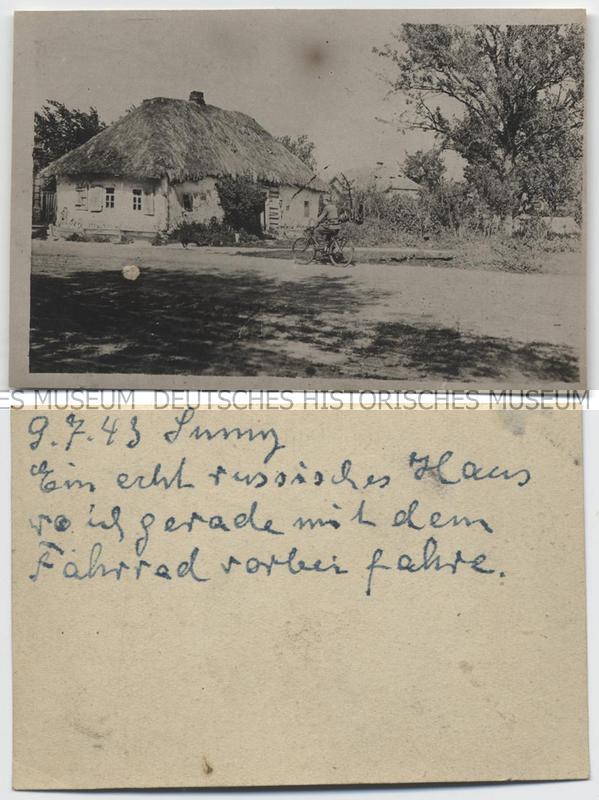 DEUTSCHES HISTORISCHES MUSEUM
9.7.43 Sumy
Ein echt russisches Haus
wo ich gerade mit dem
Fahrrad vorbei fahre.